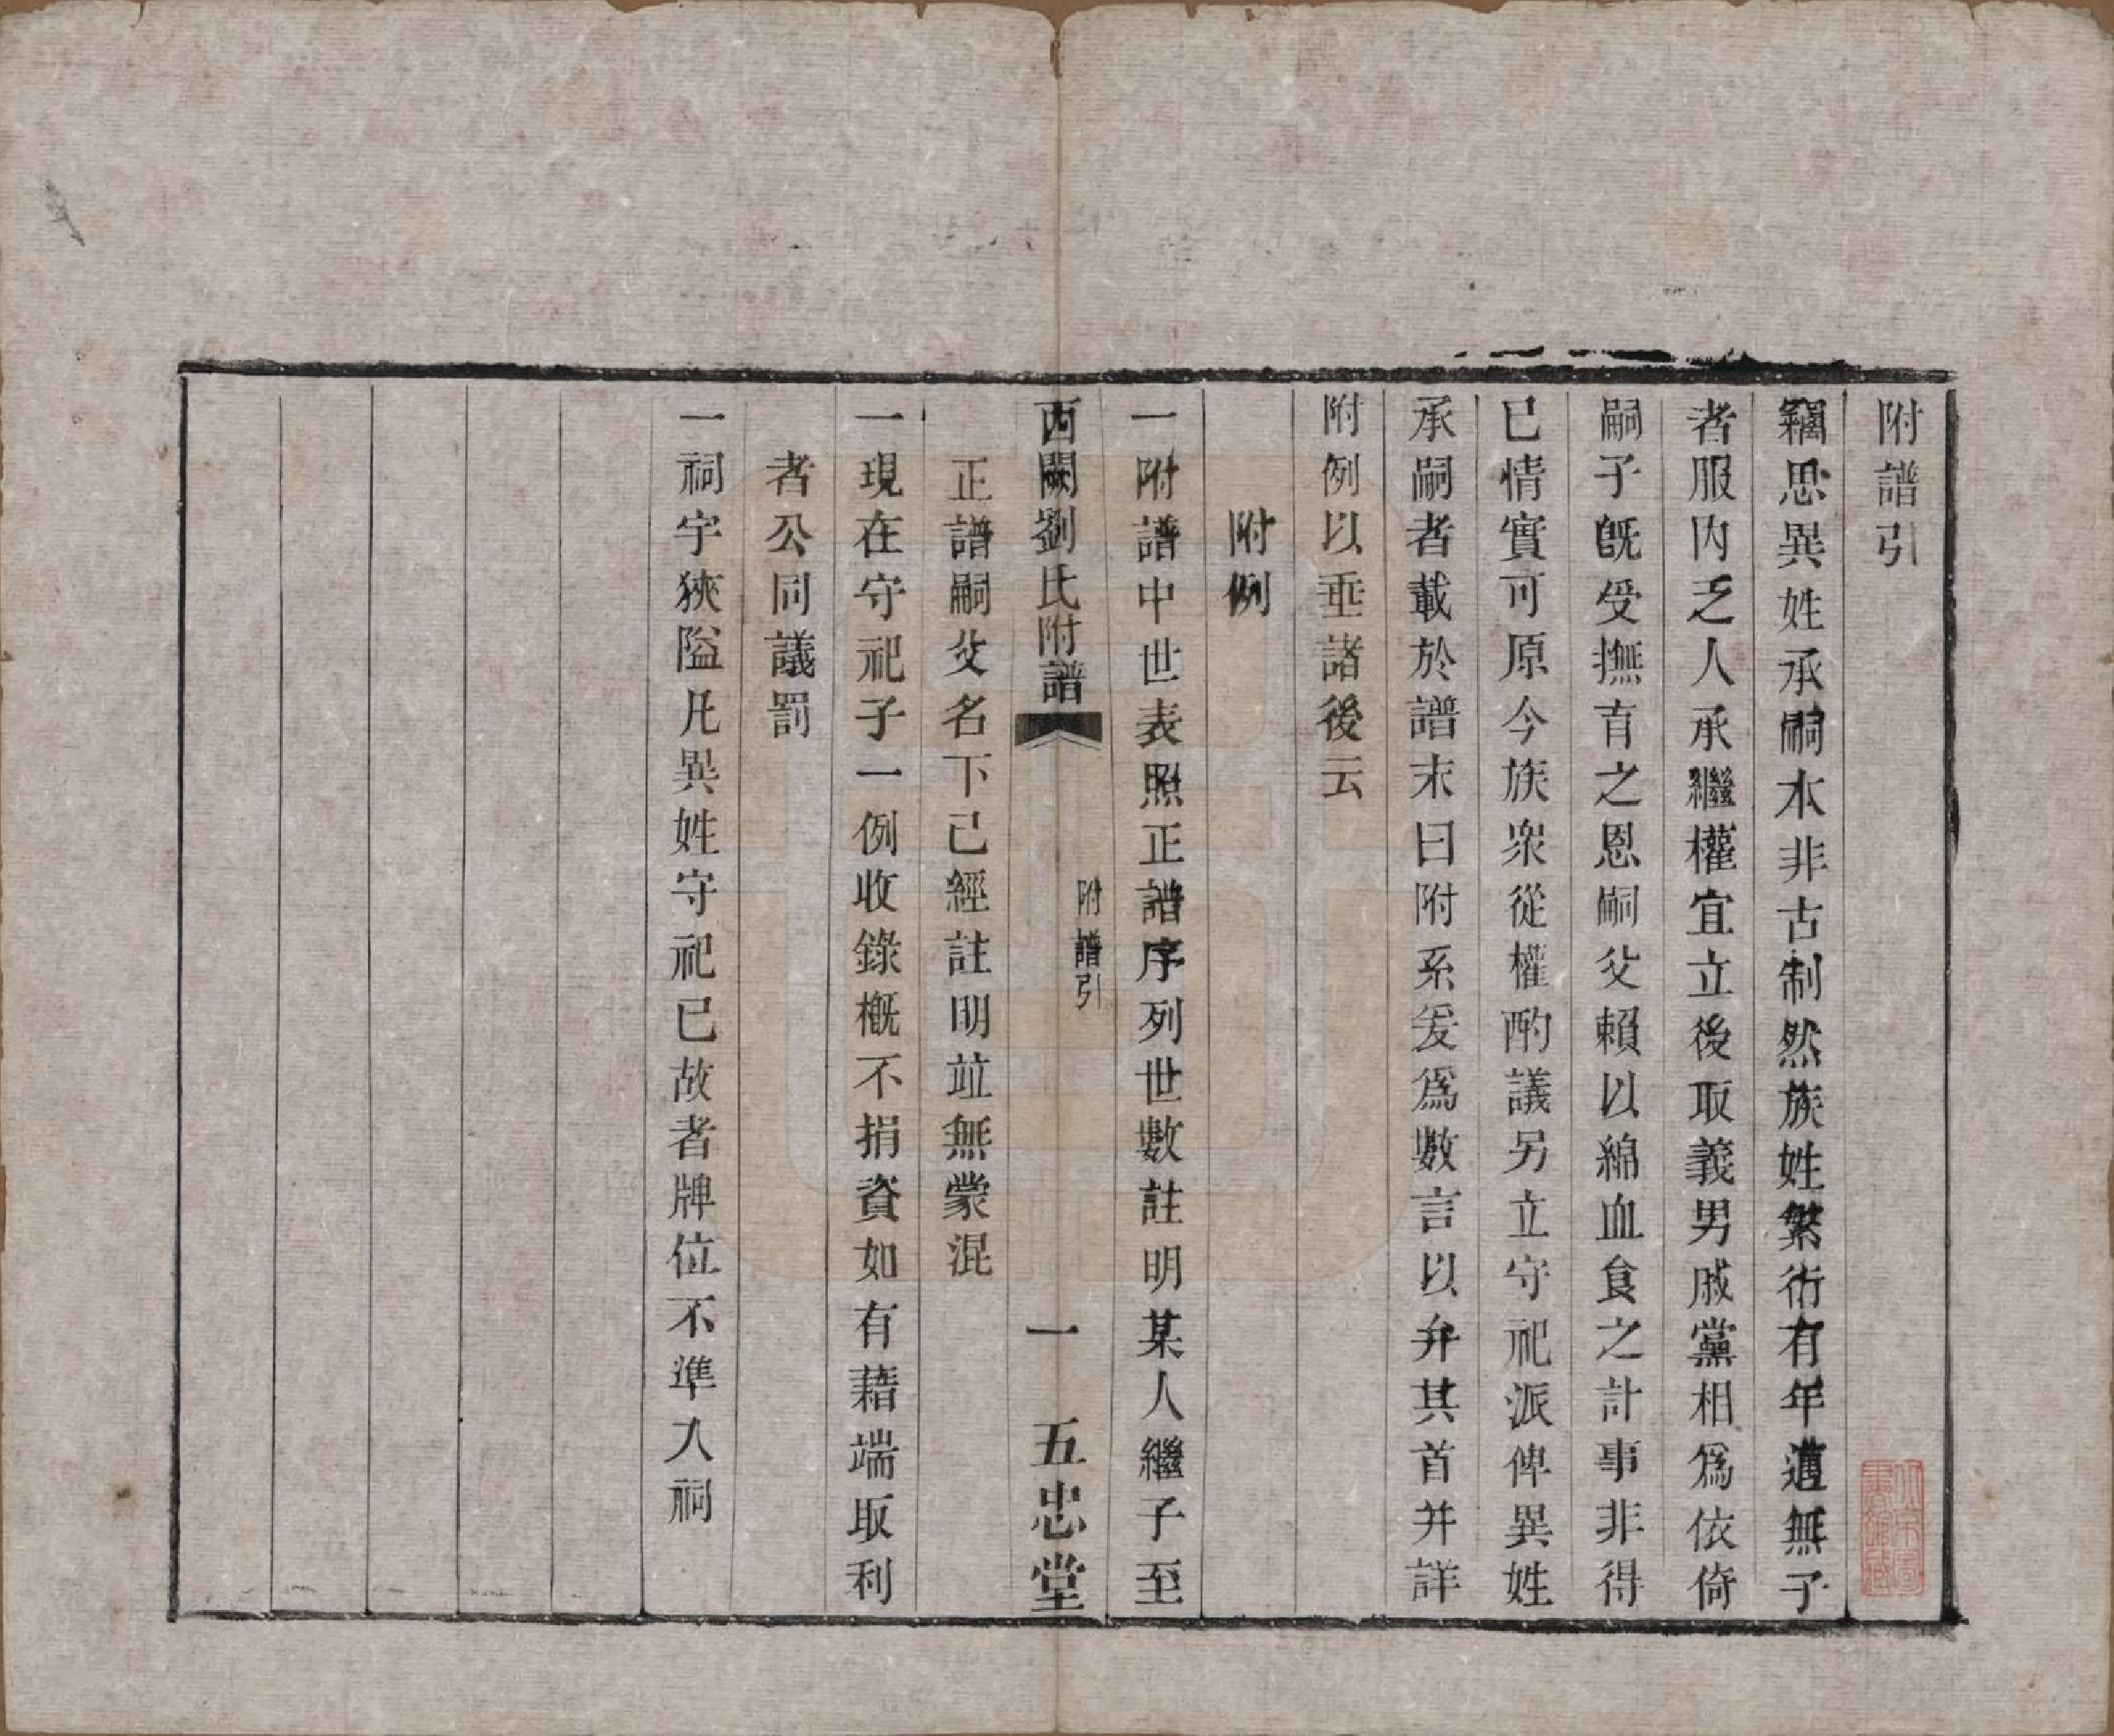 附譜引
竊思異姓承嗣本非古制然族姓繁衍有年邁無子
者服內乏人承繼權宜立後取義男戚黨相爲依倚
嗣子旣受撫育之恩嗣父賴以綿血食之計事非得
已情實可原今族衆從權酌議另立守祀派俾異姓
承嗣者載於譜末曰附系爰爲數言以弁其首并詳
附例以垂諸後云
附例
一附譜中世表照正譜序列世數註明某人繼子至
西關劉氏附譜
附譜引
一
五忠堂
正譜嗣父名下已經註明竝無蒙混
一現在守祀子一例收錄槪不捐資如有藉端取利
者公同議罰
一祠宇狹隘凡異姓守祀已故者牌位不準入祠